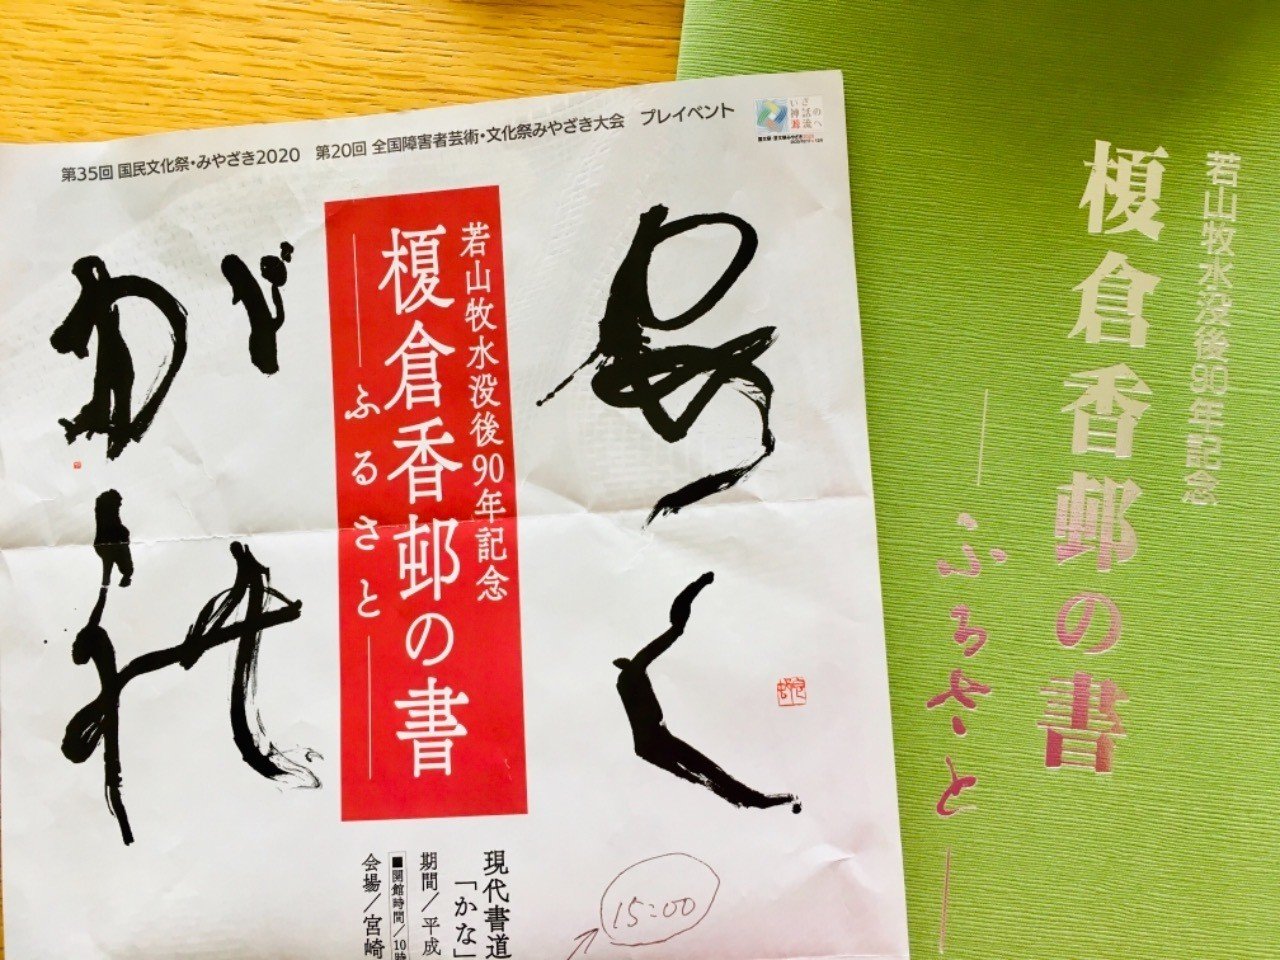 第35回 国民文化祭・みやざき2020 第20回 全国障害者芸術・文化祭みやざき大会 プレイベント
いざ
神話の
源流へ
あく
がれ
若山牧水没後90年記念
榎倉香邨の書
―ふるさと―
現代書道
「かな」
期間／平成
■開館時間／10時
会場／宮崎
15:00
若山牧水没後90年記念
榎倉香邨の書
―ふるさと―